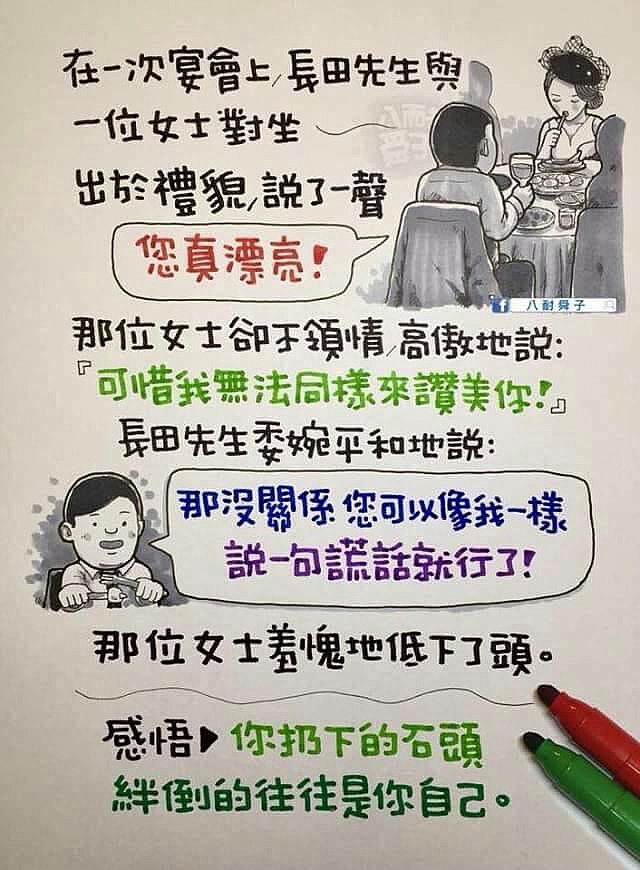 在一次宴會上,長田先生與
一位女士對坐
出於禮貌,說了一聲
您真漂亮!
八耐舜子
那位女士卻不領情,高傲地說:
『可惜我無法同樣來讚美你!』
長田先生委婉平和地說:
那沒關係 您可以像我一樣
說一句謊話就行了!
那位女士羞愧地低下了頭。
感悟▶你扔下的石頭
絆倒的往往是你自己。